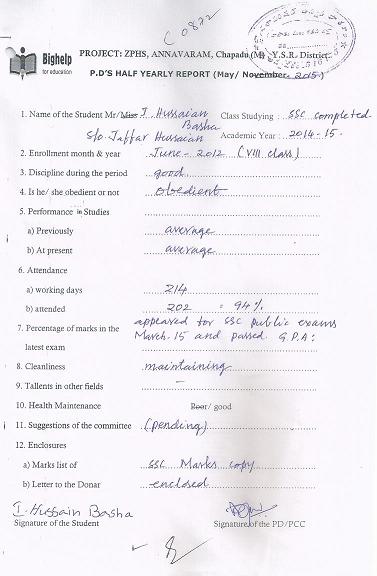 C 0872
Bighelp
for education
PROJECT: ZPHS, ANNAVARAM, Chapadu (M) Y.S.R. District
516
P.D'S HALF YEARLY REPORT (May/ November 2015)
1. Name of the Student Mr/Miss I. Hussaian Basha Class Studying : SSC completed
S/o Jaffar Hussaian Academic Year : 2014-15.
2. Enrollment month & year June - 2012 (VIII class)
3. Discipline during the period good
4. Is he/ she obedient or not obedient
5. Performance in Studies
a) Previously average
b) At present average
6. Attendance
a) working days 214
b) attended 202 = 94%
7. Percentage of marks in the appeared for SSC public exams
latest exam March.15 and passed G.P.A:
8. Cleanliness maintaining
9. Tallents in other fields –
10. Health Maintenance Poor/ good
11. Suggestions of the committee (pending)
12. Enclosures
a) Marks list of SSC Marks copy
b) Letter to the Donar enclosed
I. Hussain Basha
Signature of the Student Signature of the PD/PCC